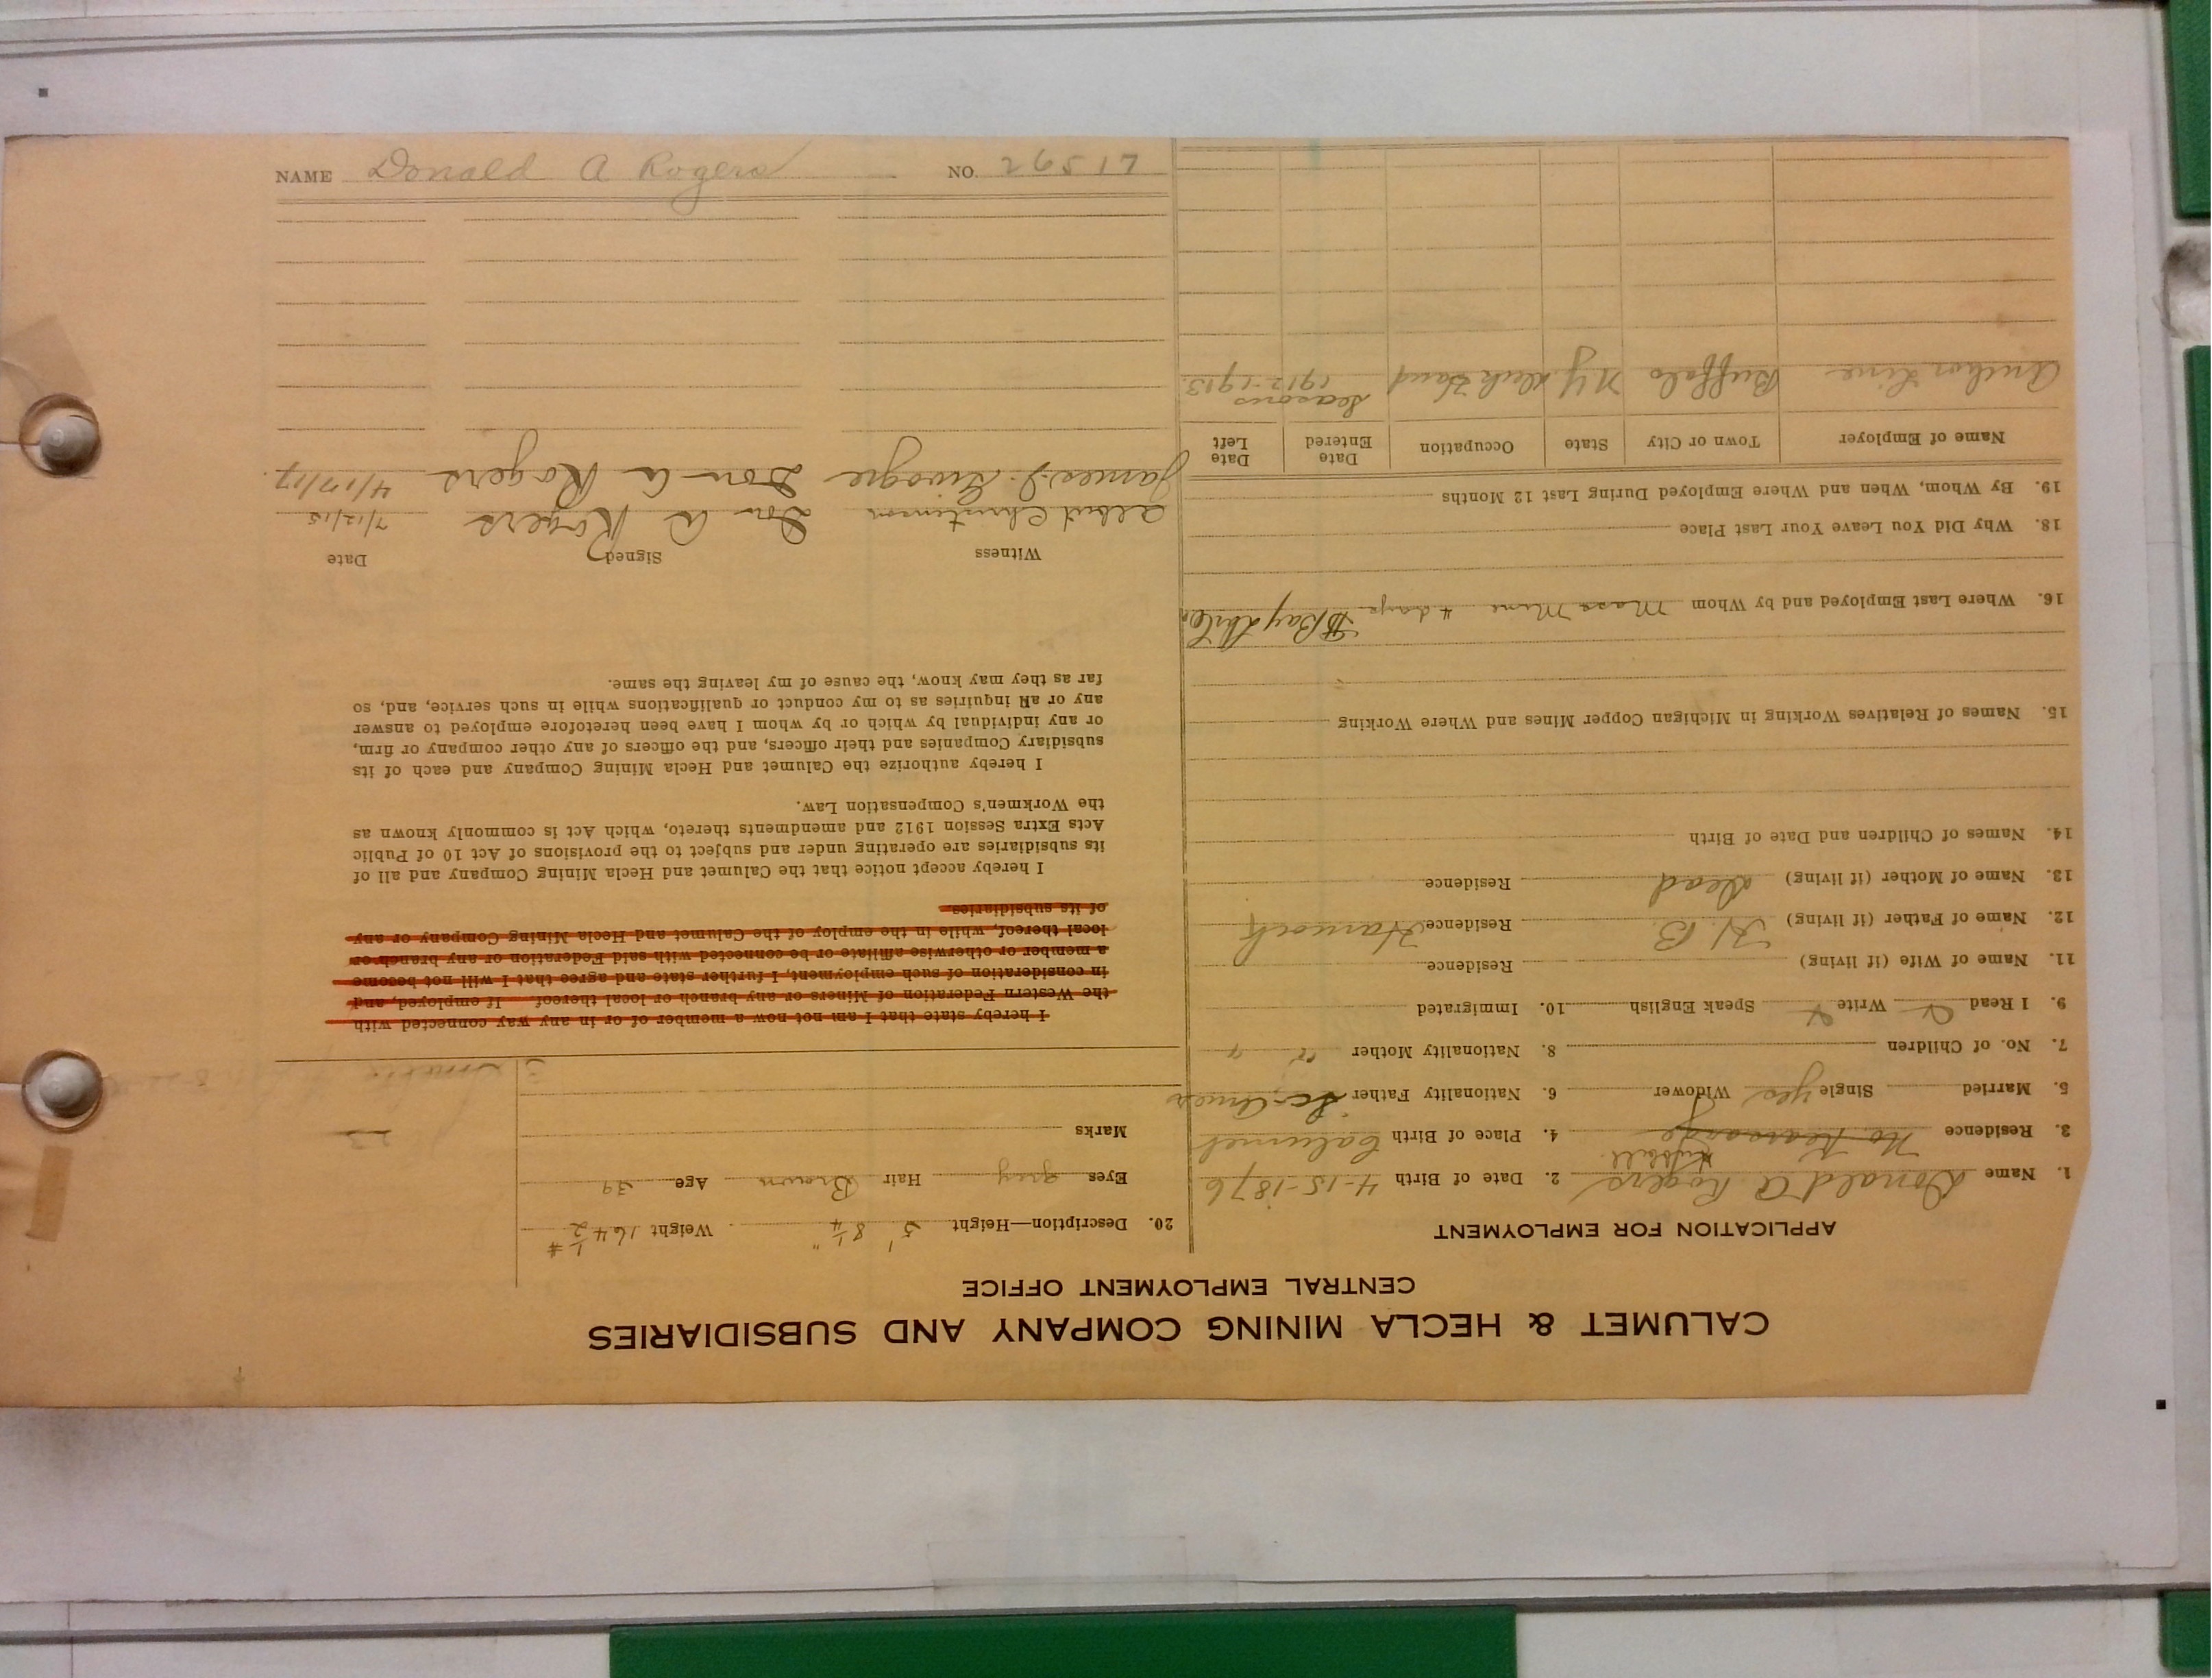 CALUMET & HECLA MINING COMPANY AND SUBSIDIARIES
CENTRAL EMPLOYMENT OFFICE
APPLICATION FOR EMPLOYMENT
1. Name Donald A Rogers 2. Date of Birth 4-15-1876
Hubbell
3. Residence No Kearsarge 4. Place of Birth Calumet
5. Married Single yes Widower 6. Nationality Father Sc-Amer
7. No. of Children 8. Nationality Mother " "
9. I Read Write Speak English 10. Immigrated
11. Name of Wife (if living) Residence
12. Name of Father (if living) H. B. Residence Hancock
13. Name of Mother (if living) Dead Residence
14. Names of Children and Date of Birth
15. Names of Relatives Working in Michigan Copper Mines and Where Working
16. Where Last Employed and by Whom Mass Mine 4 days
18. Why Did You Leave Your Last Place
19. By Whom, When and Where Employed During Last 12 Months
Name of Employer Town or City State Occupation Date Entered Date Left
Anchor Line Buffalo N Y Deck Hand Seasons 1912-1913
20. Description—Height 5' 8 1/4" Weight 164 1/2 #
Eyes grey Hair Brown Age 39
Marks
23
I hereby state that I am not now a member of or in any way connected with
the Western Federation of Miners or any branch or local thereof. If employed, and
in consideration of such employment, I further state and agree that I will not become
a member or otherwise affiliate or be connected with said Federation or any branch or
local thereof, while in the employ of the Calumet and Hecla Mining Company or any
of its subsidiaries.
I hereby accept notice that the Calumet and Hecla Mining Company and all of
its subsidiaries are operating under and subject to the provisions of Act 10 of Public
Acts Extra Session 1912 and amendments thereto, which Act is commonly known as
the Workmen's Compensation Law.
I hereby authorize the Calumet and Hecla Mining Company and each of its
subsidiary Companies and their officers, and the officers of any other company or firm,
or any individual by which or by whom I have been heretofore employed to answer
any or all inquiries as to my conduct or qualifications while in such service, and, so
far as they may know, the cause of my leaving the same.
Witness Signed Date
Albert Christenson Don A Rogers 7/12/15
James J. Don A Rogers 4/17/17.
NAME Donald A Rogers NO. 26517